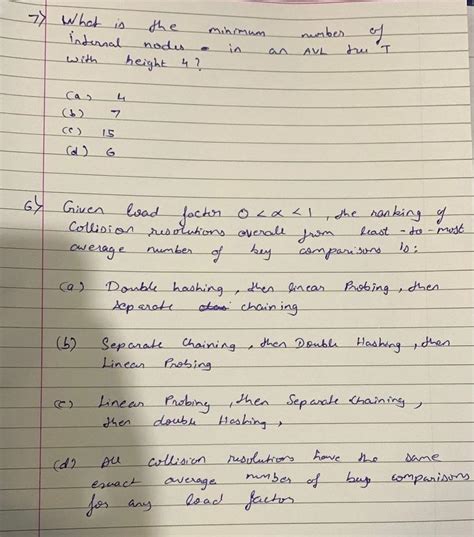 7) What is the minimum number of
internal nodes in an AVL tree T
with height 4?
(a) 4
(b) 7
(c) 15
(d) 6
6) Given load factor 0 < α < 1, the ranking of
Collision resolutions overale from least-to-most
average number of key comparisons is:
(a) Double hashing, then linear Probing, then
separate chaining
(b) Separate Chaining, then Double Hashing, then
Linear Probing
(c) Linear Probing, then Separate chaining,
then double Hashing,
(d) All collision resolutions have the same
exact average number of key comparisons
for any load factor